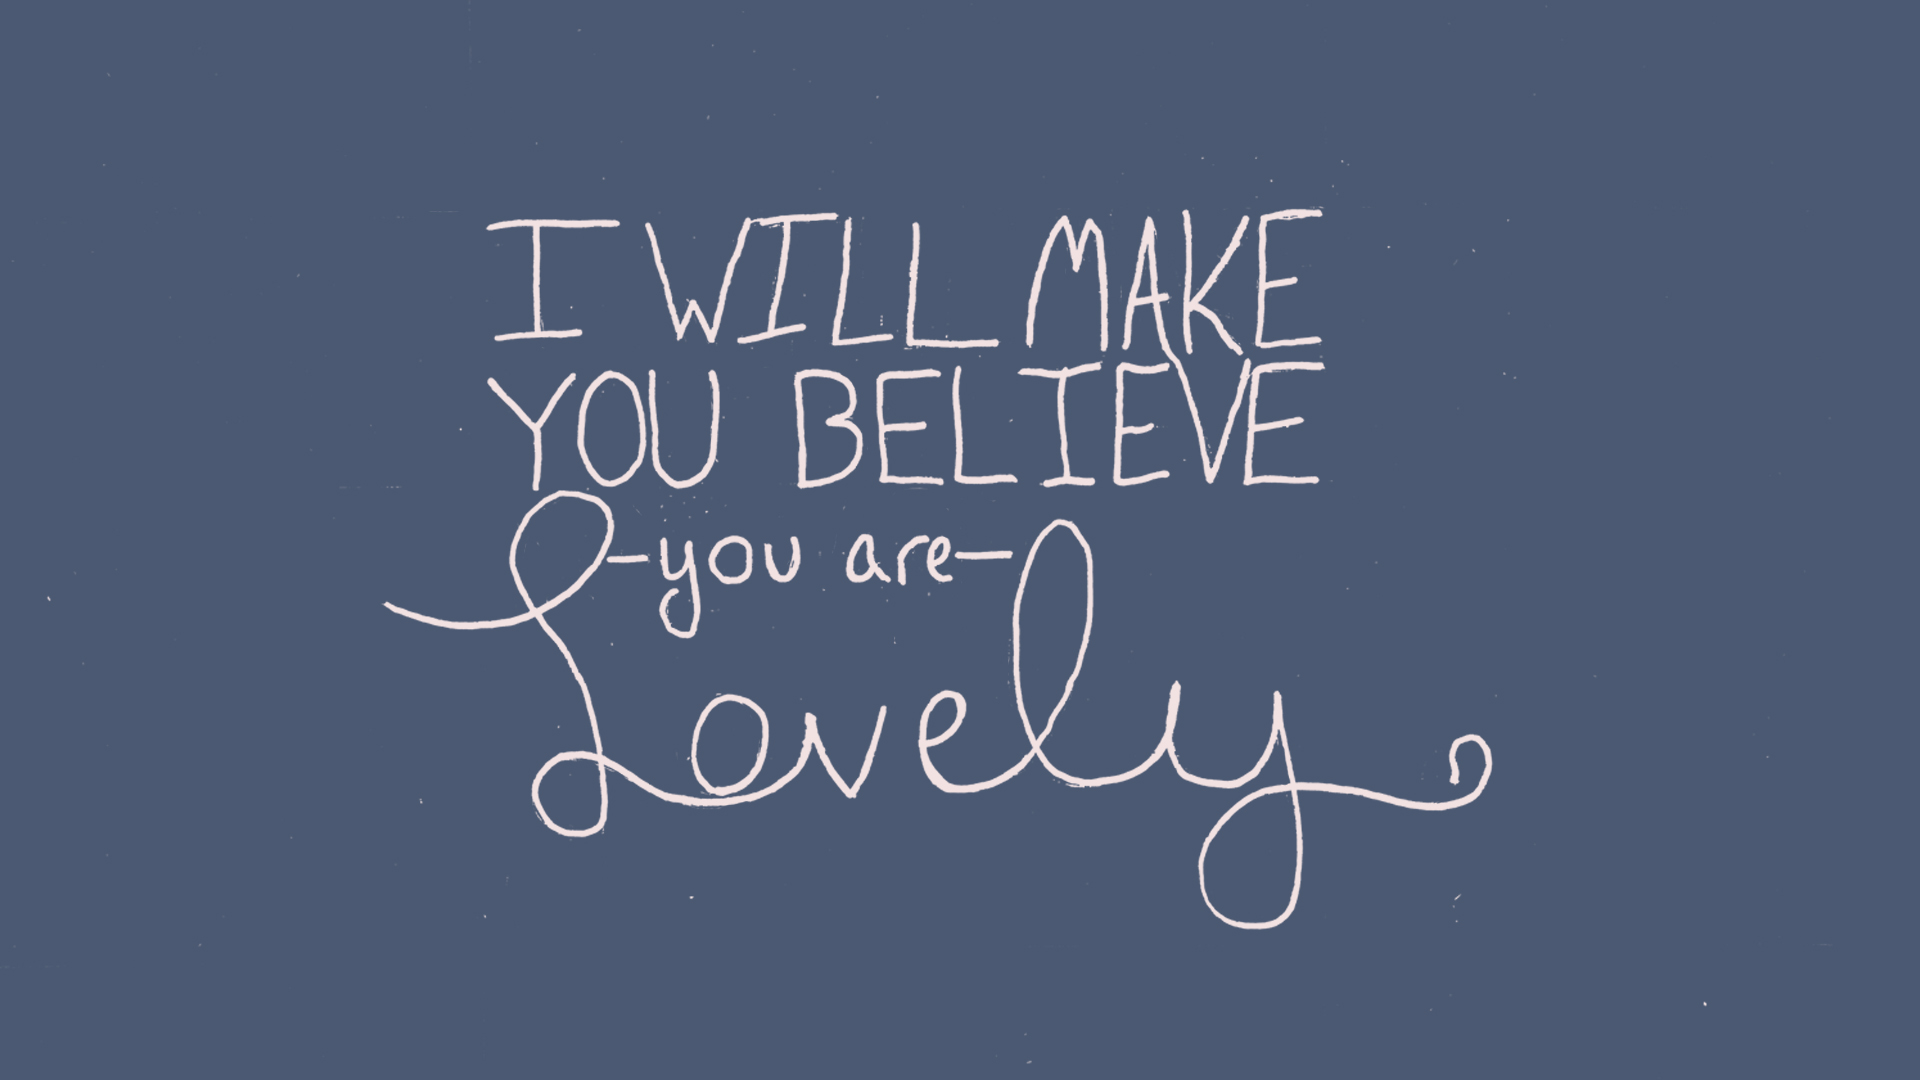 I WILL MAKE
YOU BELIEVE
-you are-
Lovely